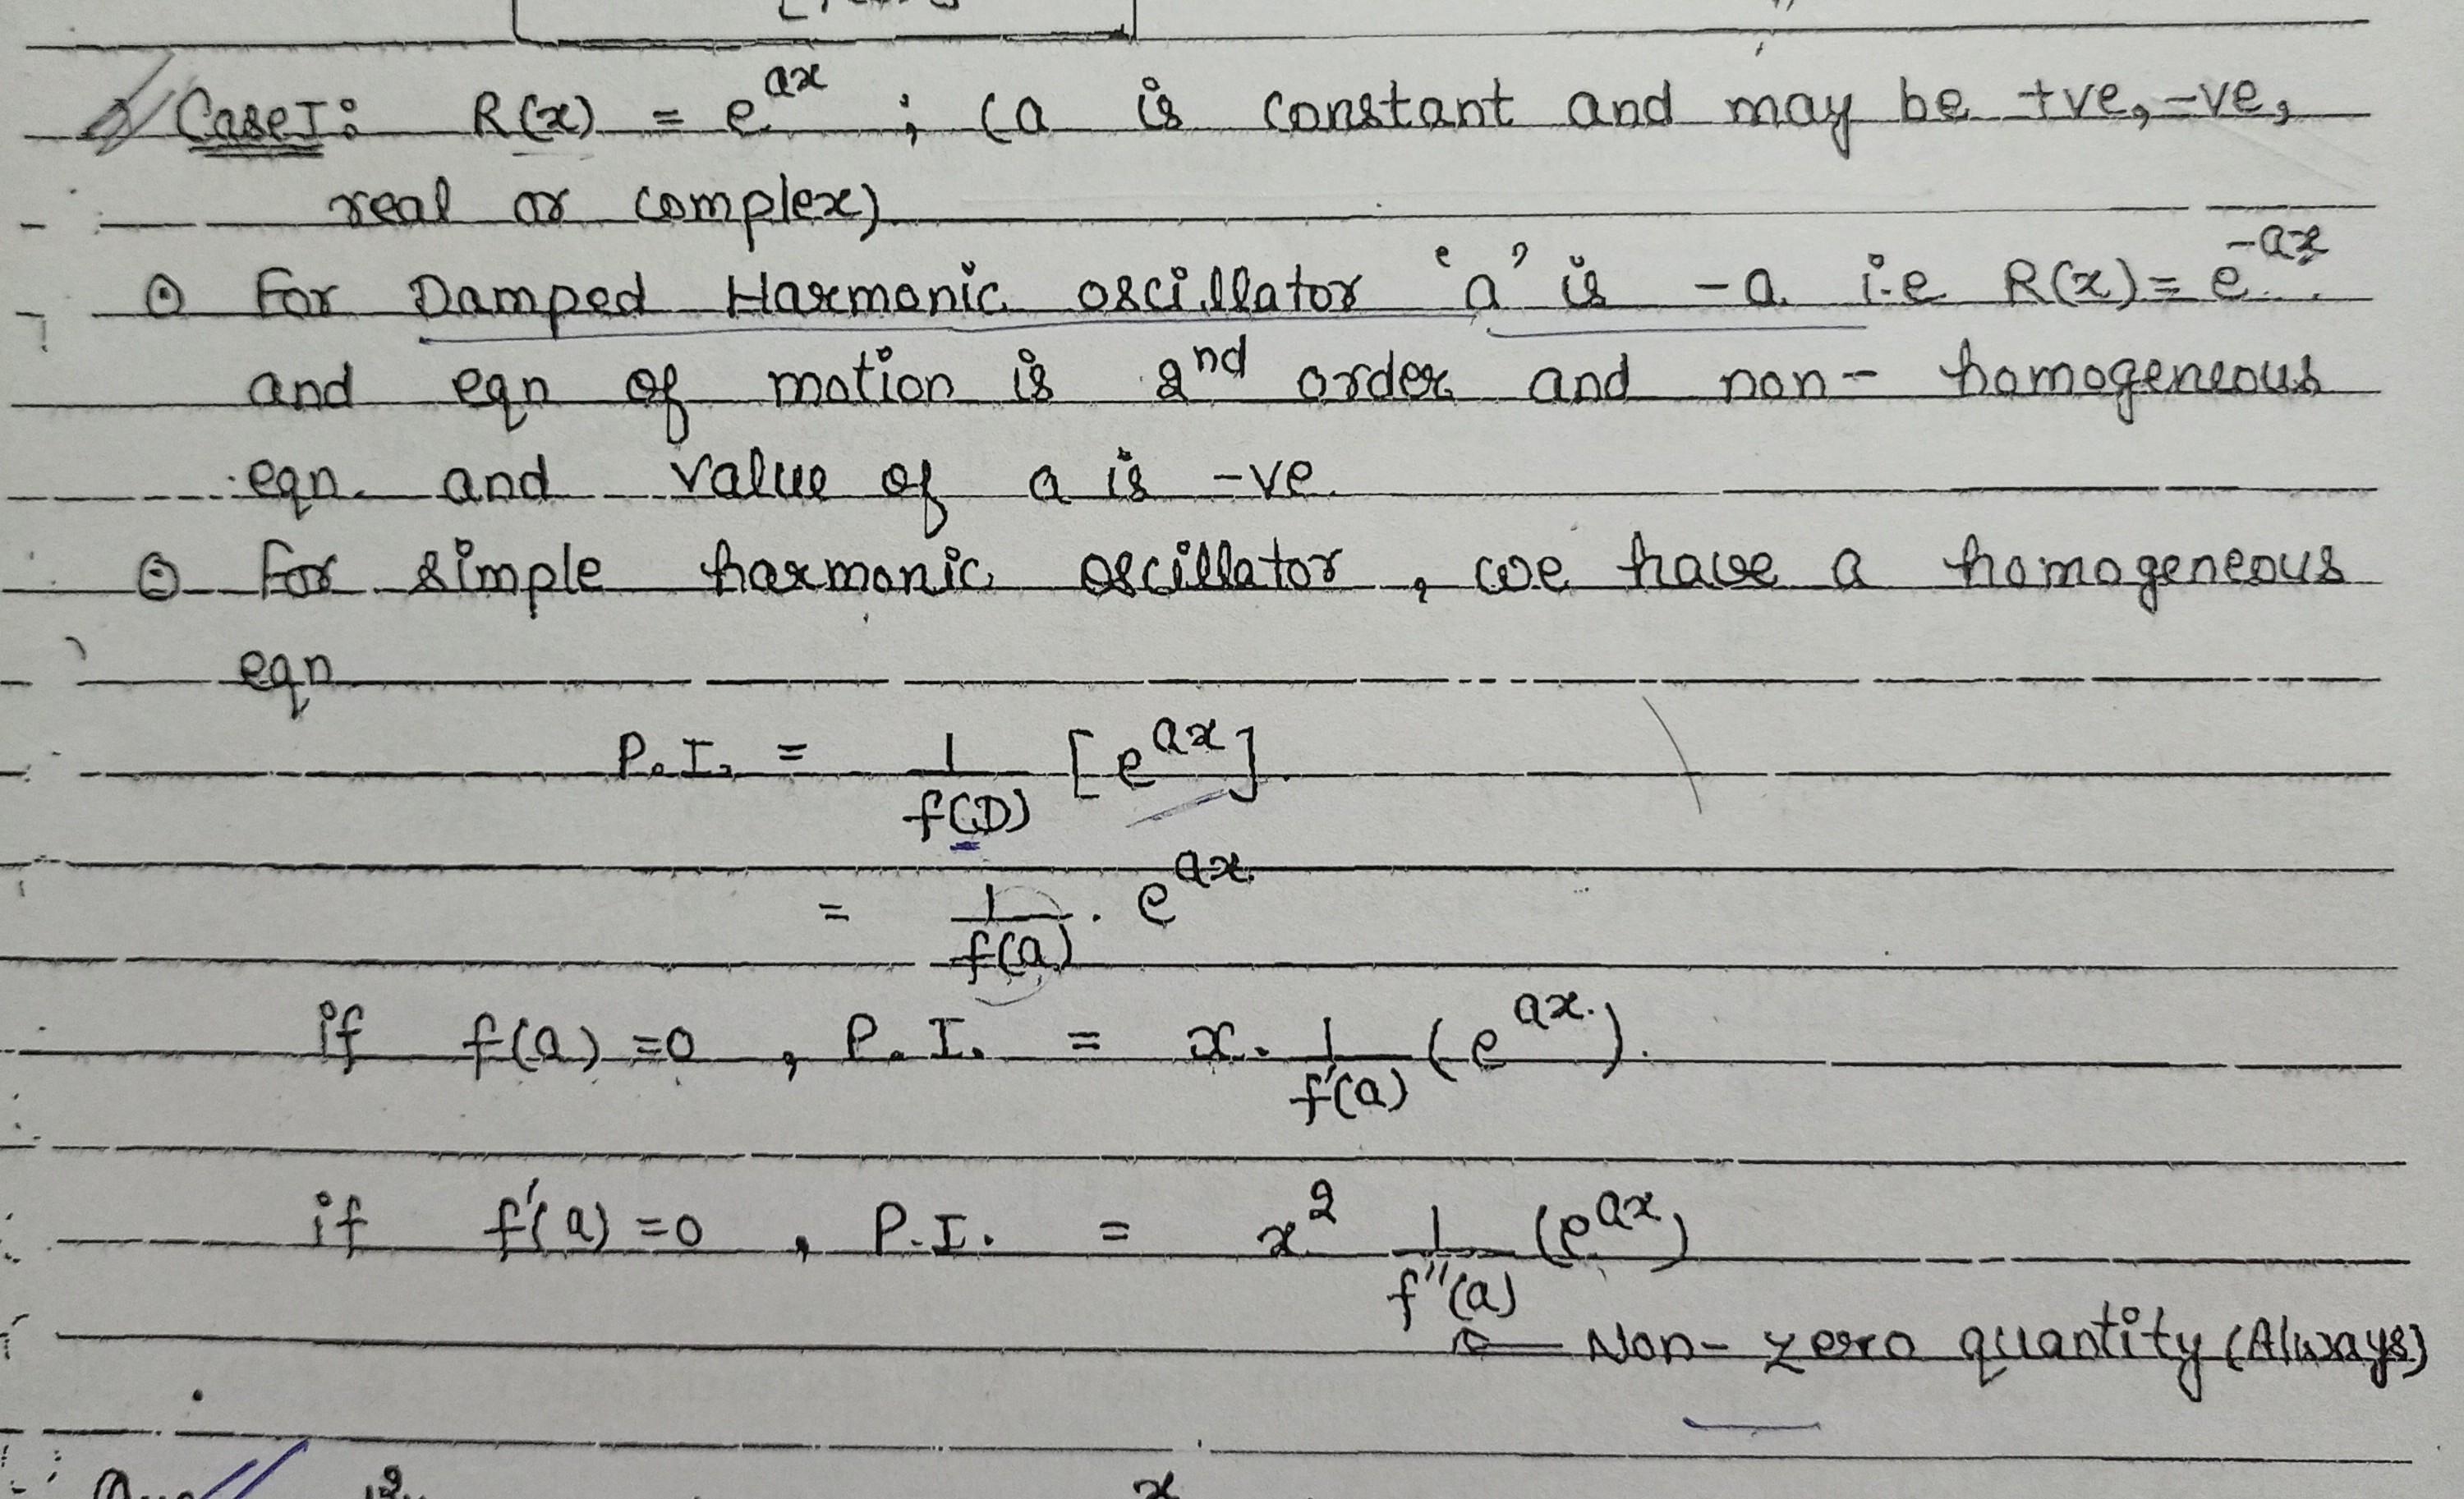 Case I: R(x) = e^{ax} ; (a is constant and may be +ve, -ve,
real or complex)
① For Damped Harmonic oscillator 'a' is -a i.e R(x) = e^{-ax}
and eqn of motion is 2nd order and non- homogeneous
eqn. and value of a is -ve.
② For simple harmonic oscillator, we have a homogeneous
eqn
P.I. = \frac{1}{f(D)} [e^{ax}]
= \frac{1}{f(a)} . e^{ax}
if f(a) = 0 , P.I. = x. \frac{1}{f'(a)} (e^{ax}).
if f'(a) = 0 , P.I. = x^2 \frac{1}{f''(a)} (e^{ax})
← Non- zero quantity (Always)